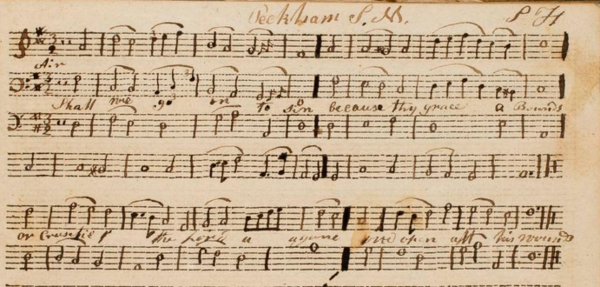 Peckham S. M. P H
Air
Shall we go in to sin because thy grace a Bounds
or Crusifie the Lord a againe and open all his wounds